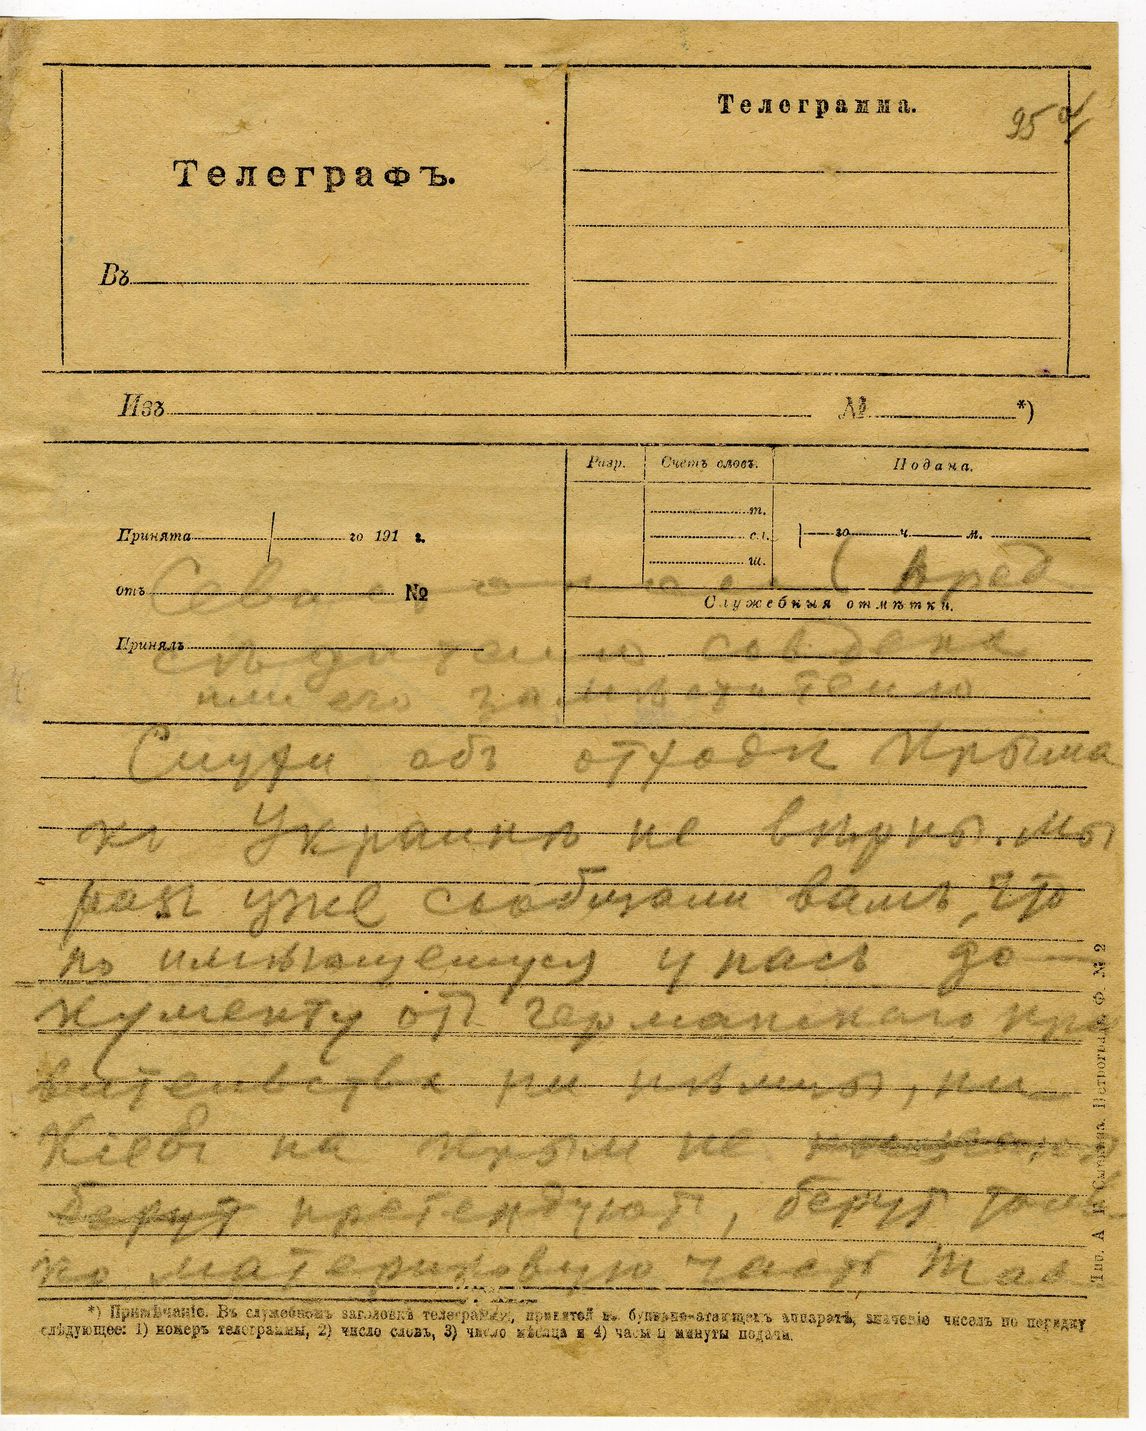 Телеграмма.
95
Телеграфъ.
Въ
Изъ
№ *)
Разр. Счетъ словъ. Подана.
т.
Принята го 191 г. сл. го ч. м.
ш.
отъ №
Севастополь (Пред
Служебныя отмѣтки.
Принялъ
сѣдателю совдепа
или его замѣстителю
Слухи объ отходѣ Крыма
къ Украинѣ не вѣрны. Мы
разъ уже сообщали вамъ, что
по имѣющемуся у насъ до
кументу отъ германскаго пра
вительства ни нѣмцы, ни
Кіевъ на Крым не
берут претендуют, берут толь
ко материковую часть Тав
*) Примѣчаніе. Въ служебномъ заголовкѣ телеграммы, принятой на буквопечатающемъ аппаратѣ, значеніе чиселъ по порядку
слѣдующее: 1) номеръ телеграммы, 2) число словъ, 3) число мѣсяца и 4) часы и минуты подачи.
Петроградъ. Ф. № 2